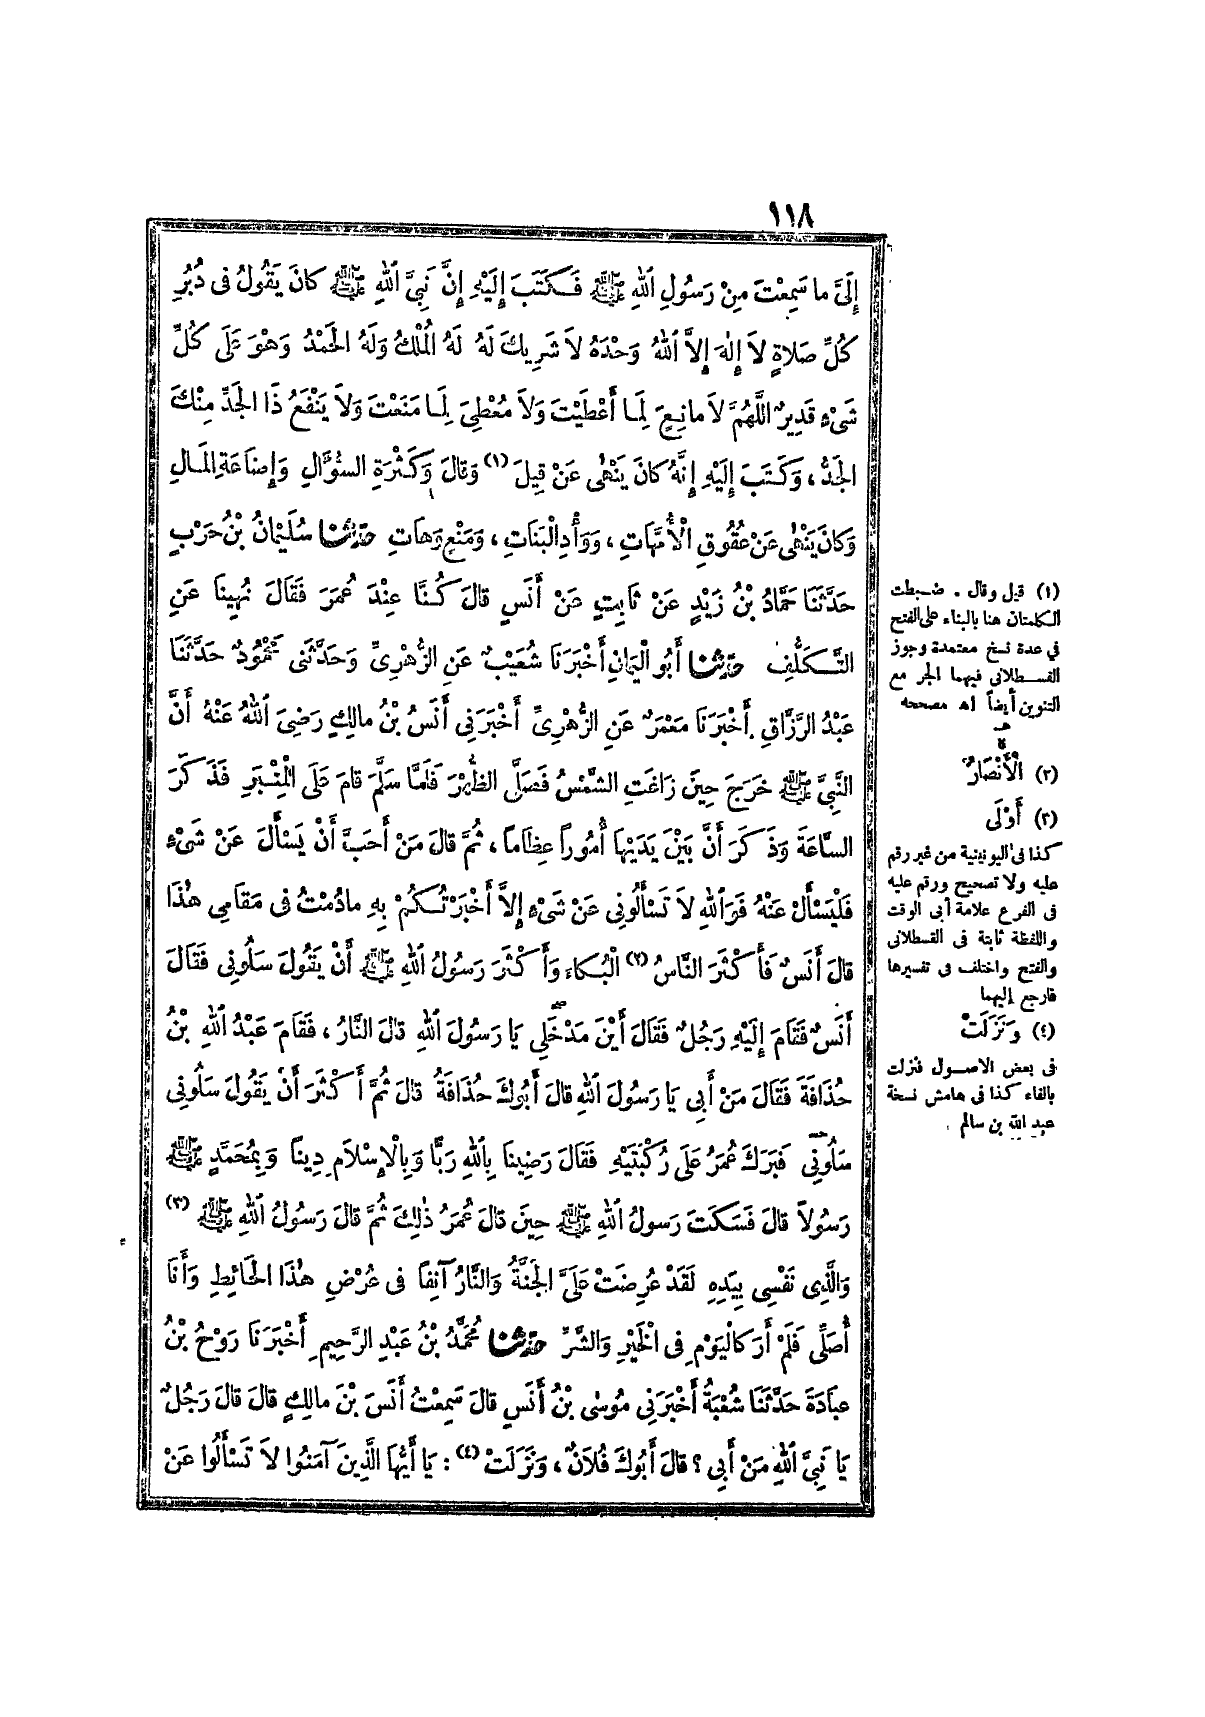 ١١٨
إِلَىَّ ما سَمِعْتَ مِنْ رَسُولِ اللهِ ﷺ فَكَتَبَ إِلَيْهِ إِنَّ نَبِيَّ اللهِ ﷺ كانَ يَقُولُ فى دُبُرِ
كُلِّ صَلاةٍ لاَ إِلٰهَ إِلاَّ اللهُ وَحْدَهُ لاَ شَرِيكَ لَهُ لَهُ الْمُلْكُ وَلَهُ الحَمْدُ وَهْوَ عَلَى كُلِّ
شَىْءٍ قَدِيرٌ اللَّهُمَّ لاَ مانِعَ لِمَا أَعْطَيْتَ وَلاَ مُعْطِىَ لِمَا مَنَعْتَ وَلاَ يَنْفَعُ ذَا الجَدِّ مِنْكَ
الجَدُّ ، وَكَتَبَ إِلَيْهِ إِنَّهُ كانَ يَنْهٰى عَنْ قِيلَ (١) وَقالَ وَكَثْرَةِ السُّؤَالِ وَإِضَاعَةِ المَالِ
وَكانَ يَنْهٰى عَنْ عُقُوقِ الْأُمَّهَاتِ ، وَوَأْدِ الْبَنَاتِ ، وَمَنْعٍ وَهَاتِ حَدَّثَنَا سُلَيْمَانُ بْنُ حَرْبٍ
حَدَّثَنَا حَمَّادُ بْنُ زَيْدٍ عَنْ ثَابِتٍ عَنْ أَنَسٍ قالَ كُنَّا عِنْدَ عُمَرَ فَقَالَ نُهِينَا عَنِ
التَّكَلُّفِ حَدَّثَنَا أَبُو الْيَمَانِ أَخْبَرَنَا شُعَيْبٌ عَنِ الزُّهْرِىِّ وَحَدَّثَنِى مَحْمُودٌ حَدَّثَنَا
عَبْدُ الرَّزَّاقِ أَخْبَرَنَا مَعْمَرٌ عَنِ الزُّهْرِىِّ أَخْبَرَنِى أَنَسُ بْنُ مالِكٍ رَضِىَ اللهُ عَنْهُ أَنَّ
النَّبِيَّ ﷺ خَرَجَ حِينَ زَاغَتِ الشَّمْسُ فَصَلَّى الظُّهْرَ فَلَمَّا سَلَّمَ قامَ عَلَى الْمِنْبَرِ فَذَكَرَ
السَّاعَةَ وَذَكَرَ أَنَّ بَيْنَ يَدَيْهَا أُمُوراً عِظَاماً ، ثُمَّ قالَ مَنْ أَحَبَّ أَنْ يَسْأَلَ عَنْ شَىْءٍ
فَلْيَسْأَلْ عَنْهُ فَوَاللهِ لاَ تَسْأَلُونِى عَنْ شَىْءٍ إِلاَّ أَخْبَرْتُكُمْ بِهِ مادُمْتُ فى مَقَامِى هٰذَا
قالَ أَنَسٌ فَأَكْثَرَ النَّاسُ (٢) الْبُكاءَ وَأَكْثَرَ رَسُولُ اللهِ ﷺ أَنْ يَقُولَ سَلُونِى فَقَالَ
أَنَسٌ فَقَامَ إِلَيْهِ رَجُلٌ فَقَالَ أَيْنَ مَدْخَلِى يَا رَسُولَ اللهِ قالَ النَّارُ ، فَقَامَ عَبْدُ اللهِ بْنُ
حُذَافَةَ فَقَالَ مَنْ أَبِى يَا رَسُولَ اللهِ قالَ أَبُوكَ حُذَافَةُ قالَ ثُمَّ أَكْثَرَ أَنْ يَقُولَ سَلُونِى
سَلُونِى فَبَرَكَ عُمَرُ عَلَى رُكْبَتَيْهِ فَقَالَ رَضِينَا بِاللهِ رَبًّا وَبِالْإِسْلاَمِ دِينًا وَبِمُحَمَّدٍ ﷺ
رَسُولاً قالَ فَسَكَتَ رَسُولُ اللهِ ﷺ حِينَ قالَ عُمَرُ ذٰلِكَ ثُمَّ قالَ رَسُولُ اللهِ ﷺ (٣)
وَالَّذِى نَفْسِى بِيَدِهِ لَقَدْ عُرِضَتْ عَلَىَّ الجَنَّةُ وَالنَّارُ آنِفًا فى عُرْضِ هٰذَا الحَائِطِ وَأَنَا
أُصَلِّى فَلَمْ أَرَ كالْيَوْمِ فِى الْخَيْرِ وَالشَّرِّ حَدَّثَنَا مُحَمَّدُ بْنُ عَبْدِ الرَّحِيمِ أَخْبَرَنَا رَوْحُ بْنُ
عبَادَةَ حَدَّثَنَا شُعْبَةُ أَخْبَرَنِى مُوسٰى بْنُ أَنَسٍ قالَ سَمِعْتُ أَنَسَ بْنَ مالِكٍ قالَ قالَ رَجُلٌ
يَا نَبِيَّ اللهِ مَنْ أَبِى ؟ قالَ أَبُوكَ فُلاَنٌ ، وَنَزَلَتْ (٤) : يَا أَيُّهَا الَّذِينَ آمَنُوا لاَ تَسْأَلُوا عَنْ
(١) قيل وقال . ضبطت
الكلمتان هنا بالبناء على الفتح
فى عدة نسخ معتمدة وجوز
القسطلانى فيهما الجر مع
التنوين أيضاً اه مصححه
(٢) الْأَنْصَارُ
(٣) أَوْلَى
كذا فى اليونينية من غير رقم
عليه ولا تصحيح ورقم عليه
فى الفرع علامة أبى الوقت
واللفظة ثابتة فى القسطلانى
والفتح واختلف فى تفسيرها
فارجع إليهما
(٤) وَنَزَلَتْ
فى بعض الاصول فنزلت
بالفاء كذا فى هامش نسخة
عبد الله بن سالم